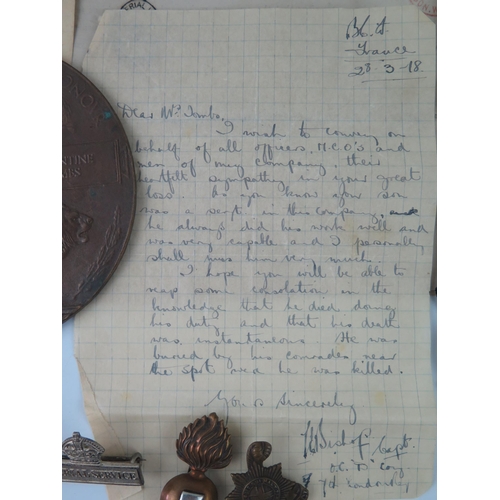 B.E.F.
France
28-3-18.
Dear Mrs Tombs,
I wish to convey on
behalf of all officers, N.C.O's and
men of my Company, their
heartfelt sympathy in your great
loss. As you know your son
was a sergt in this Company, and
he always did his work well and
was very capable and I personally
shall miss him very much.
I hope you will be able to
reap some consolation in the
knowledge that he died doing
his duty and that his death
was instantaneous. He was
buried by his comrades near
the spot where he was killed.
Yours Sincerely
Bishop Capt.
O.C. "D" Coy
7th Londons
SERVICE